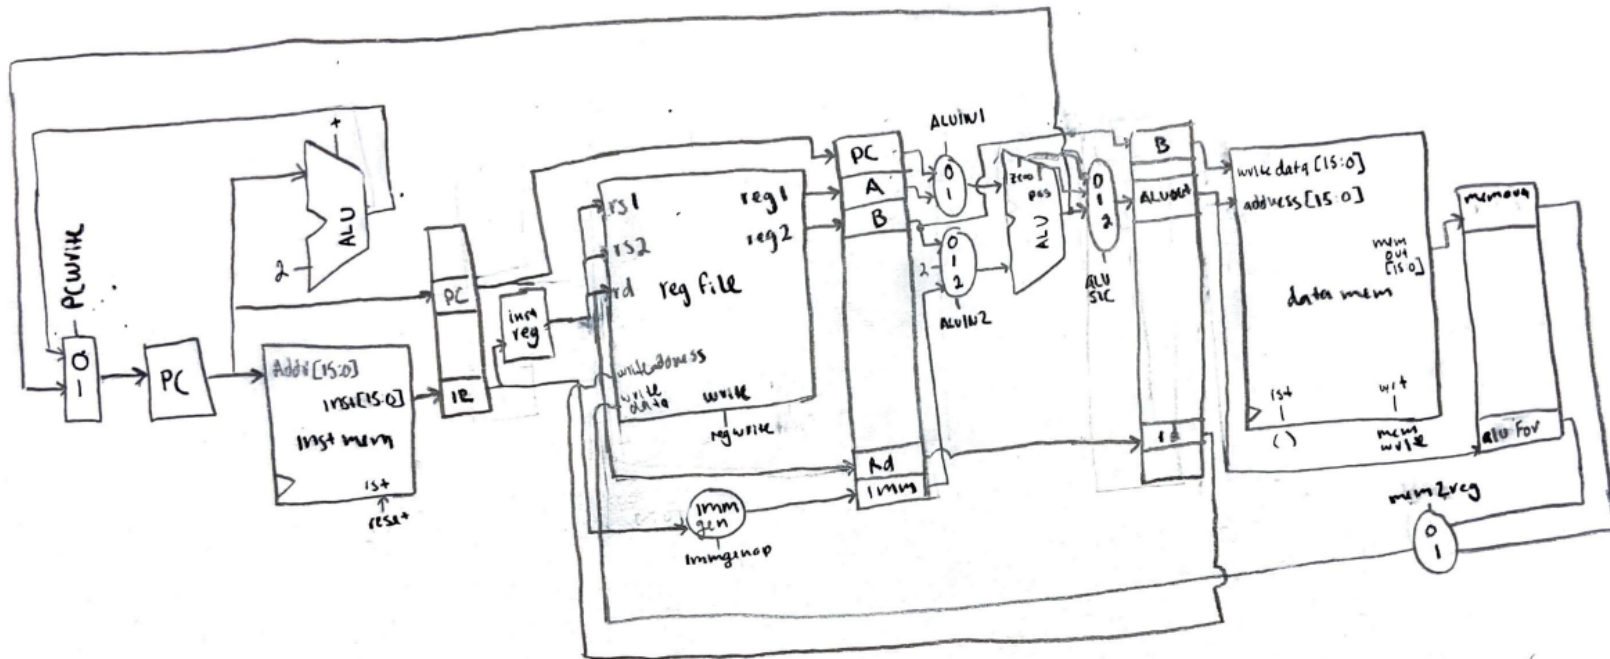 PCwrite
0
1
PC
+
ALU
2
Addr[15:0]
inst[15:0]
inst mem
rst
reset
PC
IR
inst
reg
rs1
rs2
rd
reg1
reg2
reg file
write address
write
data
write
regwrite
imm
gen
immgenop
PC
A
B
Rd
Imm
ALUIN1
0
1
0
1
2
2
ALUIN2
zero
pos
ALU
0
1
2
ALU
SrC
B
ALUOut
rd
write data [15:0]
address [15:0]
mem
out
[15:0]
data mem
rst
wrt
( )
mem
write
memory
alu for
mem2reg
0
1